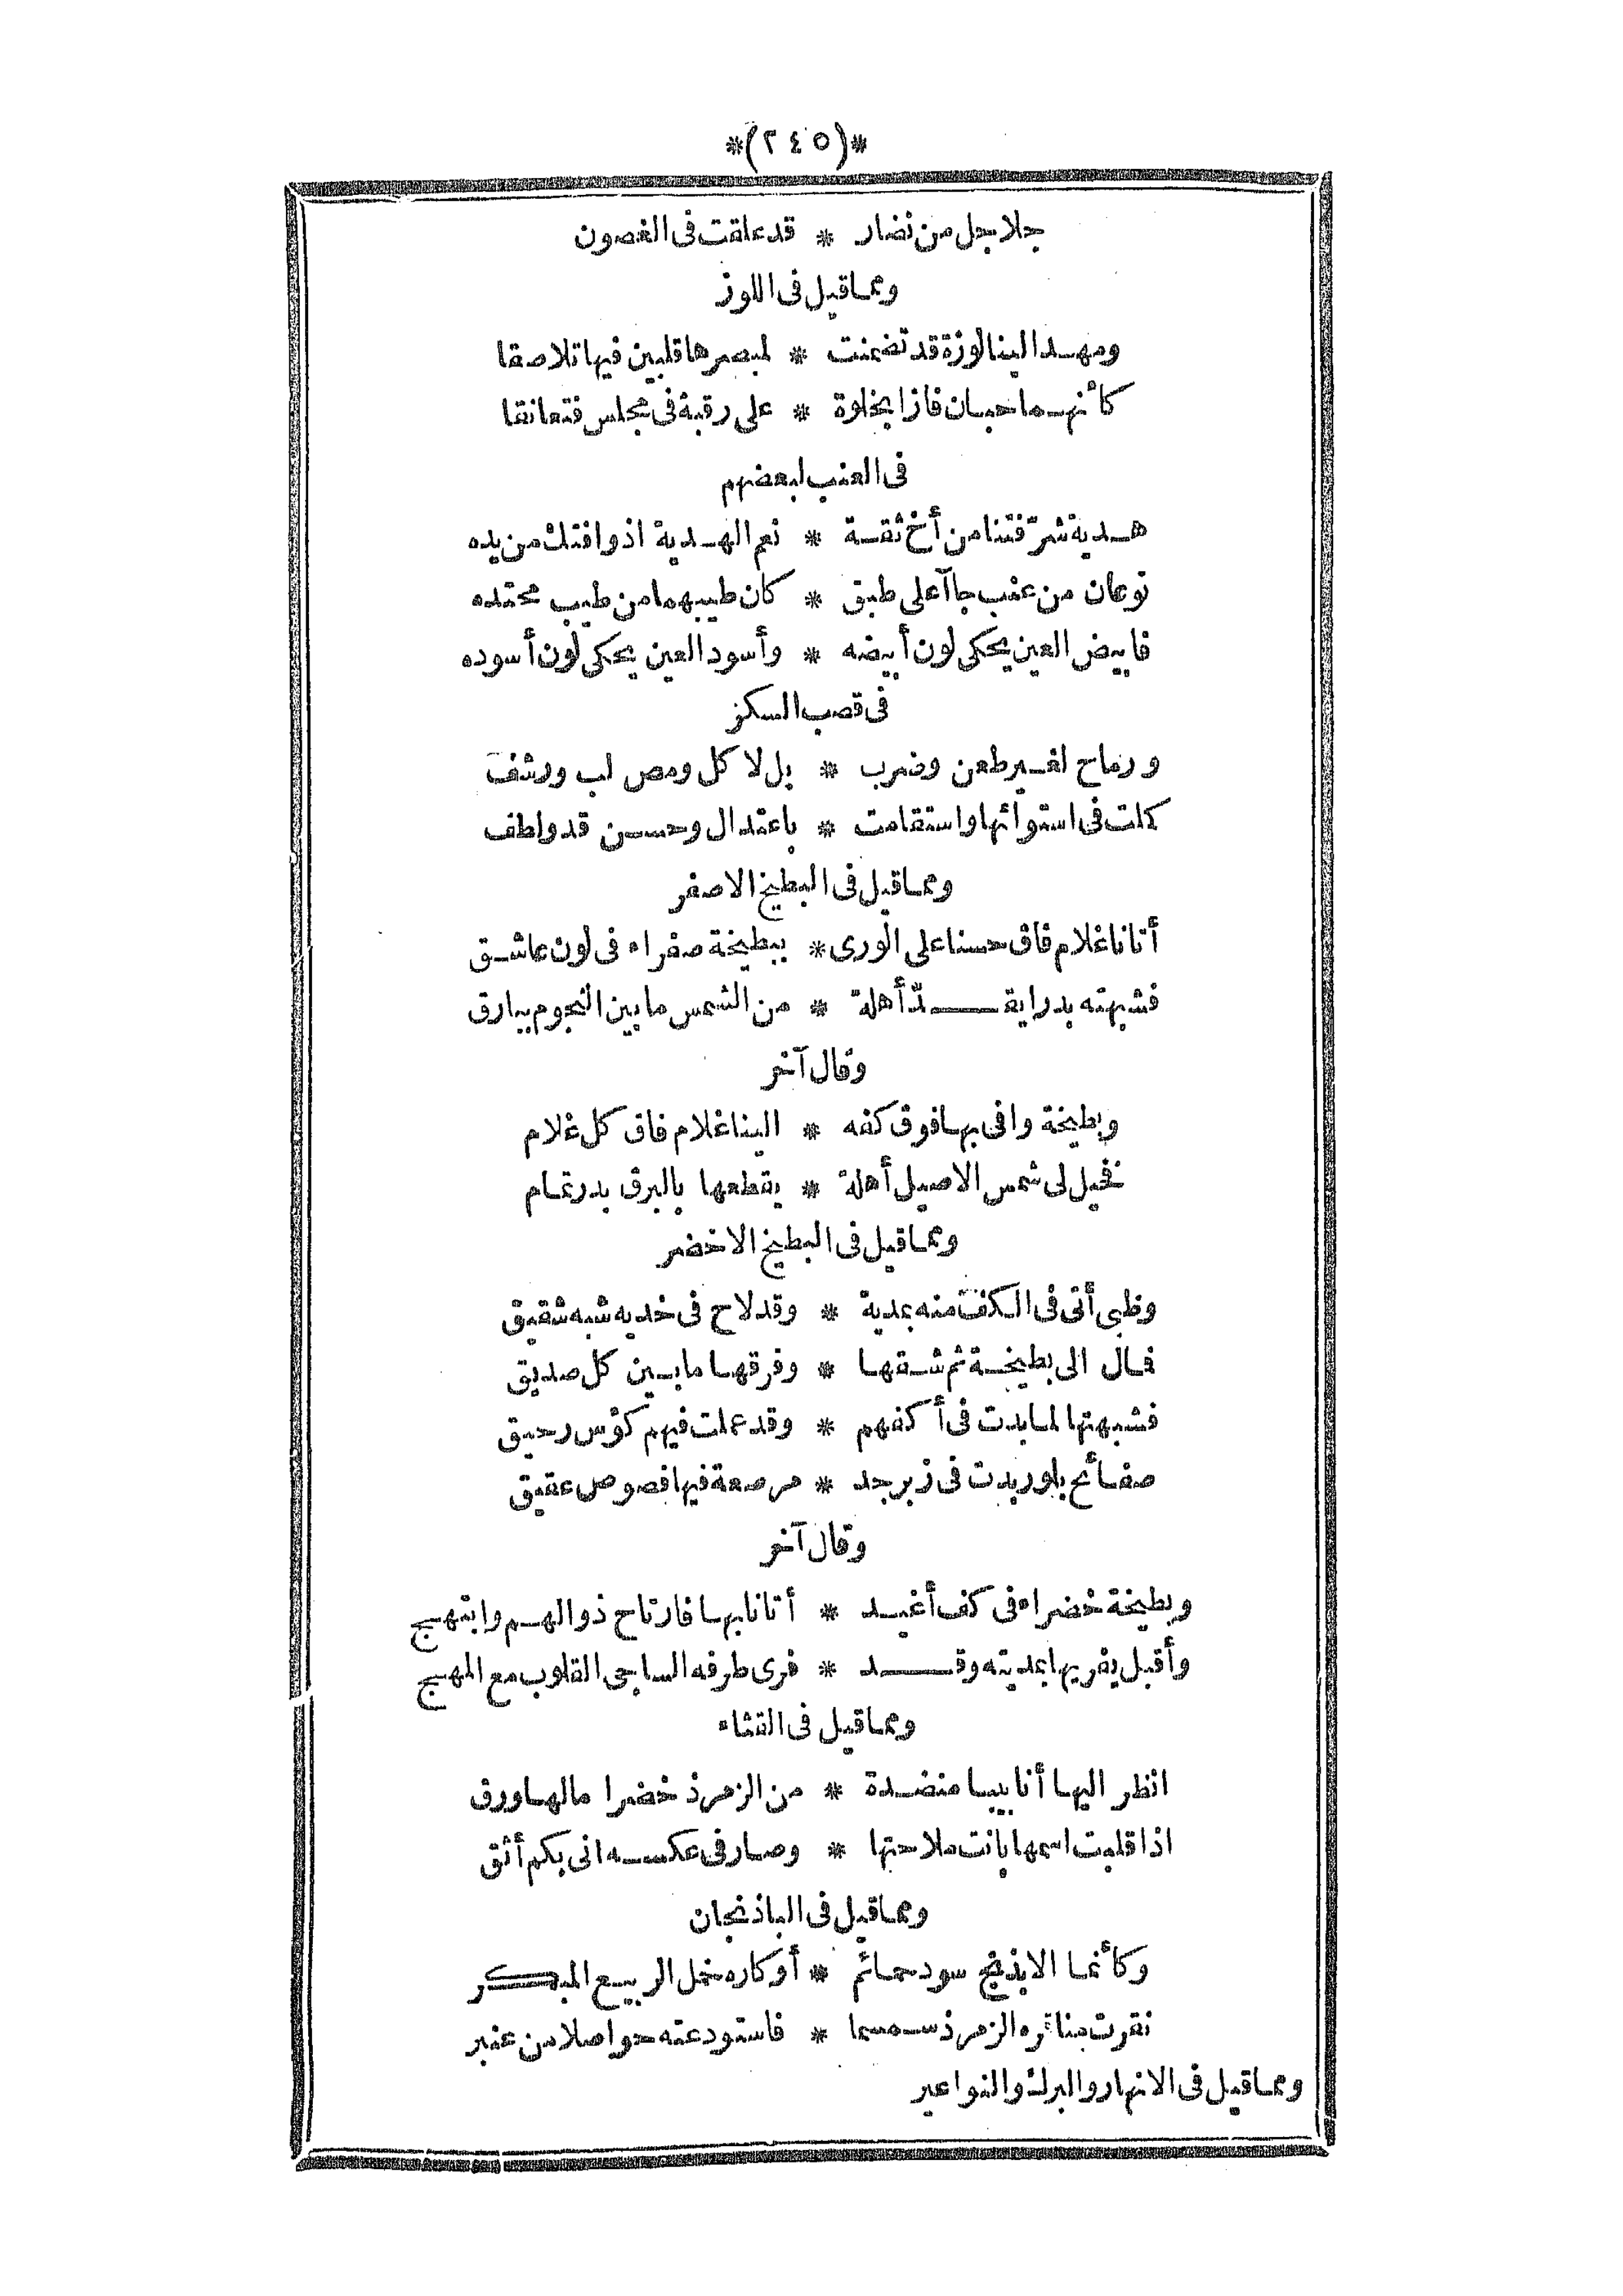 *(٢٤٥)*
جلاجل من نضار * قد علقت فى الغصون
ومما قيل فى اللوز
ومهد الينا لوزة قد تضمنت * لمبصرها قلبين فيها تلاصقا
كأنهما حبان فازا بخلوة * على رقبة فى مجلس فتعانقا
فى العنب لبعضهم
هدية شرّفتنا من أخ ثقة * نعم الهدية اذ وافتك من يده
نوعان من عنب جاآ على طبق * كان طيبهما من طيب محتده
فابيض العين يحكى لون أبيضه * وأسود العين يحكى لون أسوده
فى قصب السكر
ورماح لغير طعن وضرب * بل لا كل ومص لب ورشف
كملت فى استوائها واستقامت * باعتدال وحسن قد ولطف
ومما قيل فى البطيخ الاصفر
أتانا غلام فاق حسنا على الورى * ببطيخة صفراء فى لون عاشق
فشبهته بدرا يقدّ أهلة * من الشمس ما بين النجوم ببارق
وقال آخر
وبطيخة وافى بها فوق كفه * الينا غلام فاق كل غلام
فخيل لى شمس الاصيل أهلة * يقطعها بالبرق بدر تمام
ومما قيل فى البطيخ الاخضر
وظبى أتى فى الكف منه بمدية * وقد لاح فى خديه شبه شقيق
فمال الى بطيخة ثم شقها * وفرقها ما بين كل صديق
فشبهتها لما بدت فى أكفهم * وقد عملت فيهم كؤس رحيق
صفائح بلور بدت فى زبرجد * مرصعة فيها فصوص عقيق
وقال آخر
وبطيخة خضراء فى كف أغيد * أتانا بها فارتاح ذو الهم وابتهج
وأقبل يفريها بمديته وقد * فرى طرفه الساجى القلوب مع المهج
ومما قيل فى القثاء
انظر اليها أنابيبا منضدة * من الزمرذ خضرا مالها ورق
اذا قلبت اسمها بانت ملاحتها * وصار فى عكسه انى بكم أثق
ومما قيل فى الباذنجان
وكأنما الابذنج سود حمائم * أوكاره خمل الربيع المبكر
نقرت مناقره الزمرذ سمسما * فاستودعته حواصلا من عنبر
ومما قيل فى الانهار والبرك والنواعير